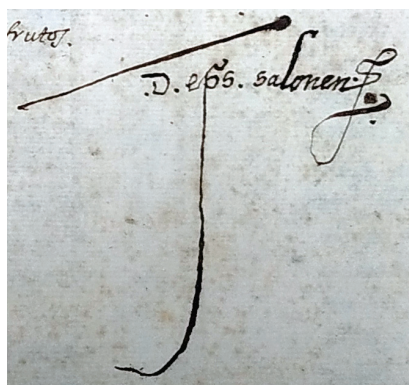 frutos.
.D. eps. salonen.